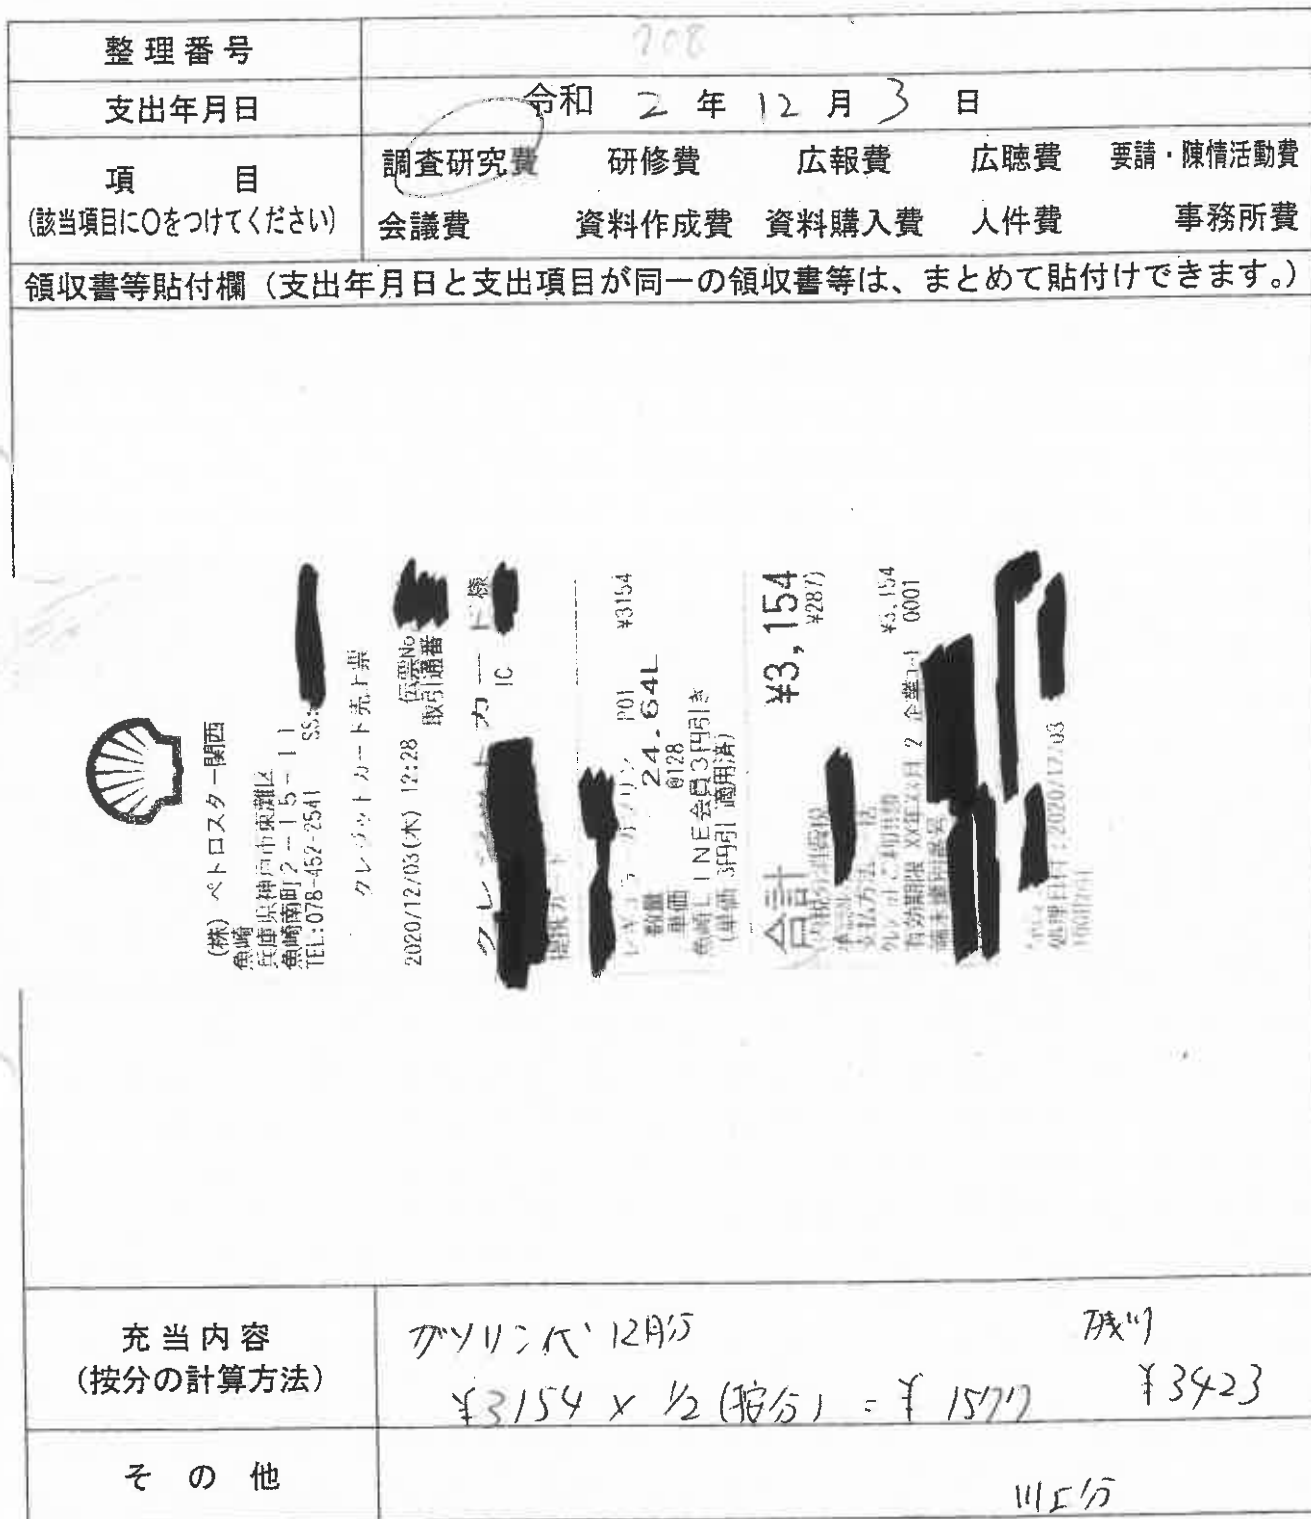 整理番号 708
支出年月日 令和 2 年 12 月 3 日
項目
(該当項目に〇をつけてください)
調査研究費 研修費 広報費 広聴費 要請・陳情活動費
会議費 資料作成費 資料購入費 人件費 事務所費
領収書等貼付欄（支出年月日と支出項目が同一の領収書等は、まとめて貼付けできます。）
(株) ペトロスター関西
魚崎
兵庫県神戸市東灘区
魚崎南町2-15-11
TEL:078-452-2541 SS:
クレジットカード売上票
2020/12/03(木) 12:28 伝票No
取引通番
クレジットカード様
IC
提携カード
レギュラーガソリン P01 ¥3154
数量 24.64L
単価 @128
魚崎LINE会員3円引き
(単価 3円引 適用済)
合計 ¥3,154
内税分消費税 ¥287)
支払方法
クレジットご利用額 ¥3,154
有効期限 XX年XX月 2 企業コード 0001
端末識別番号
処理日付:2020/12/03
充当内容
(按分の計算方法)
ガソリン代 12月分 残り
¥3154 × 1/2 (按分) = ¥ 1577 ¥3423
その他
川上分